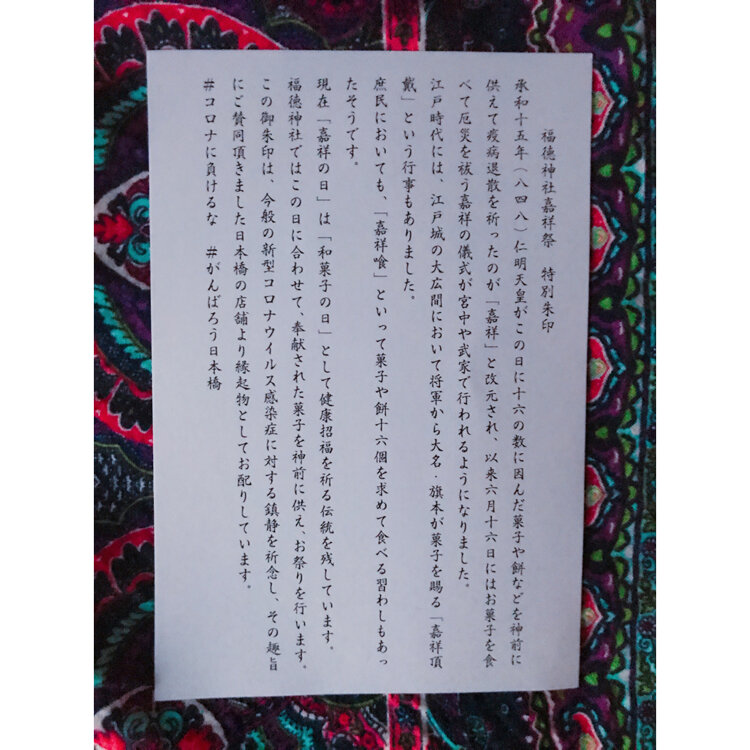 福徳神社嘉祥祭　特別朱印
承和十五年（八四八）仁明天皇がこの日に十六の数に因んだ菓子や餅などを神前に
供えて疫病退散を祈ったのが「嘉祥」と改元され、以来六月十六日にはお菓子を食
べて厄災を祓う嘉祥の儀式が宮中や武家で行われるようになりました。
江戸時代には、江戸城の大広間において将軍から大名・旗本が菓子を賜る「嘉祥頂
戴」という行事もありました。
庶民においても、「嘉祥喰」といって菓子や餅十六個を求めて食べる習わしもあっ
たそうです。
現在「嘉祥の日」は「和菓子の日」として健康招福を祈る伝統を残しています。
福徳神社ではこの日に合わせて、奉献された菓子を神前に供え、お祭りを行います。
この御朱印は、今般の新型コロナウイルス感染症に対する鎮静を祈念し、その趣旨
にご賛同頂きました日本橋の店舗より縁起物としてお配りしています。
#コロナに負けるな　#がんばろう日本橋